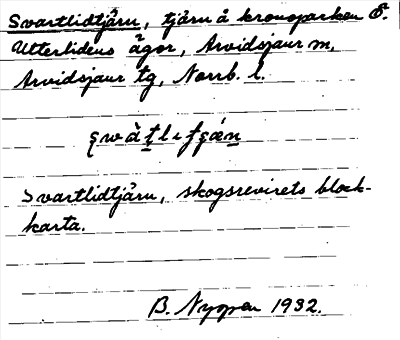 Svartlidtjärn, tjärn å kronoparken Ö.
Utterlidens ägor, Arvidsjaur sn,
Arvidsjaur tg, Norrb. l.
Svartlidtjärn, skogsrevirets block-
karta.
B. Nyman 1932.